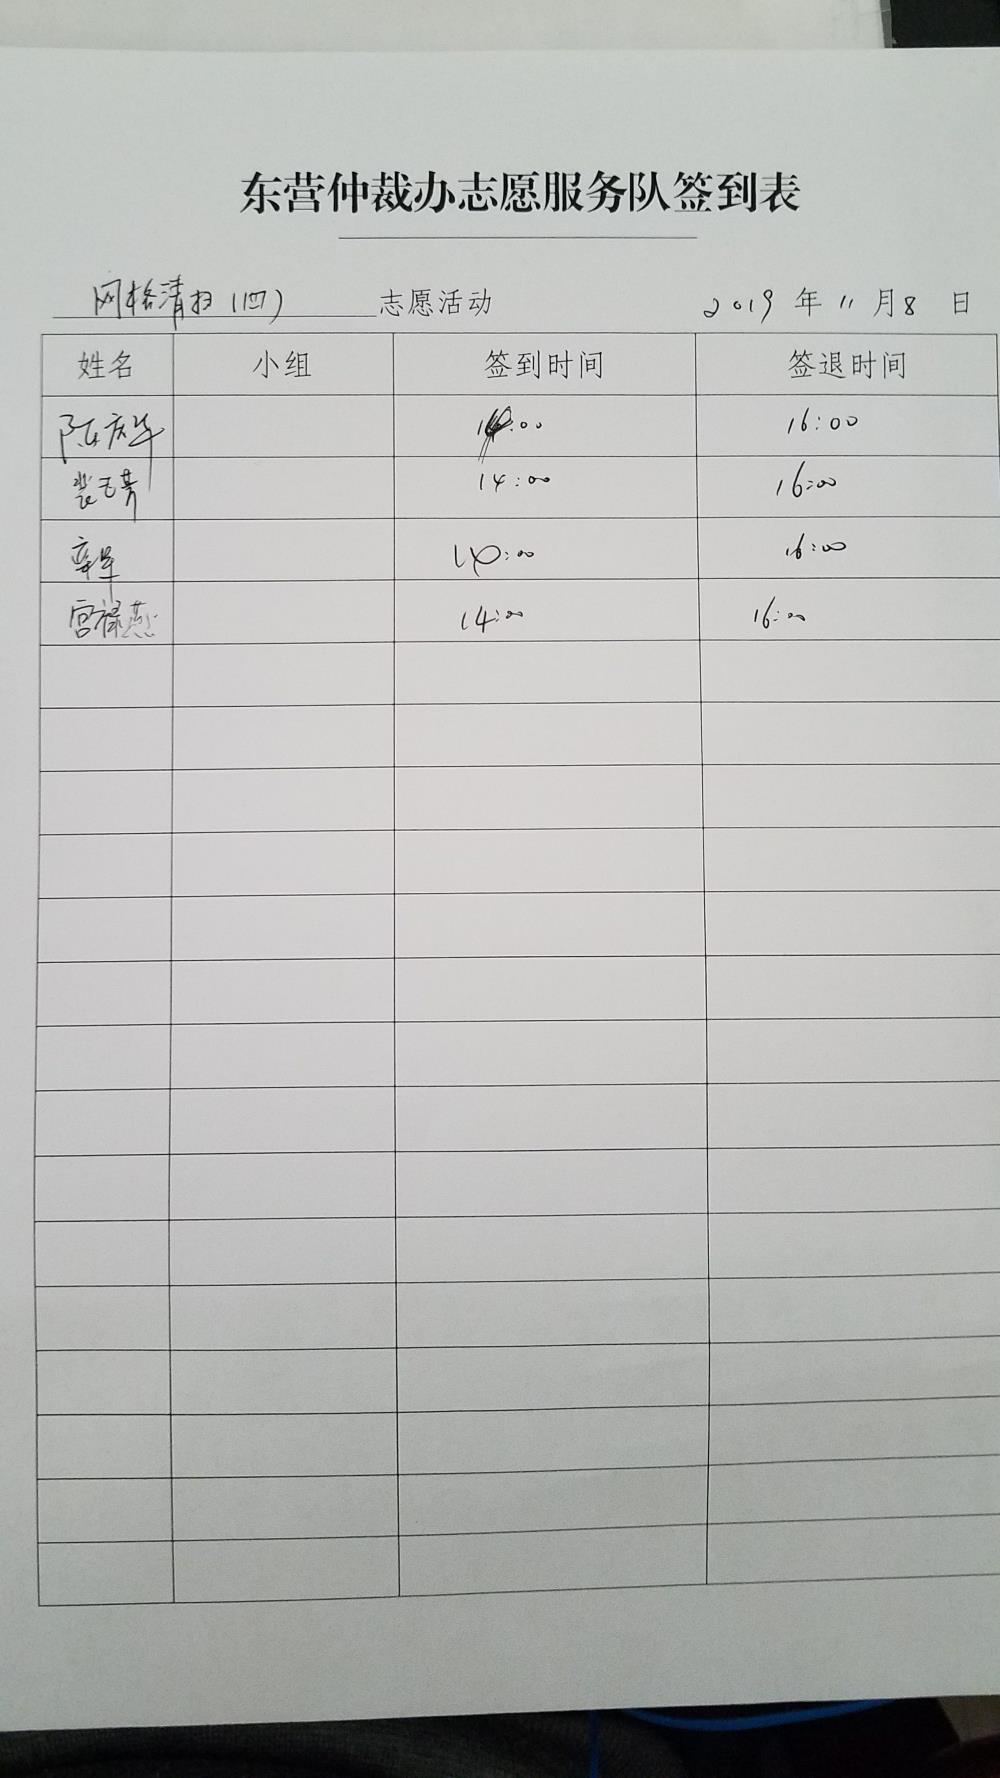 东营仲裁办志愿服务队签到表
网格清扫(四) 志愿活动 2019 年 11 月 8 日
姓名 小组 签到时间 签退时间
陈庆华 14:00 16:00
14:00 16:00
14:00 16:00
宫禄燕 14:00 16:00